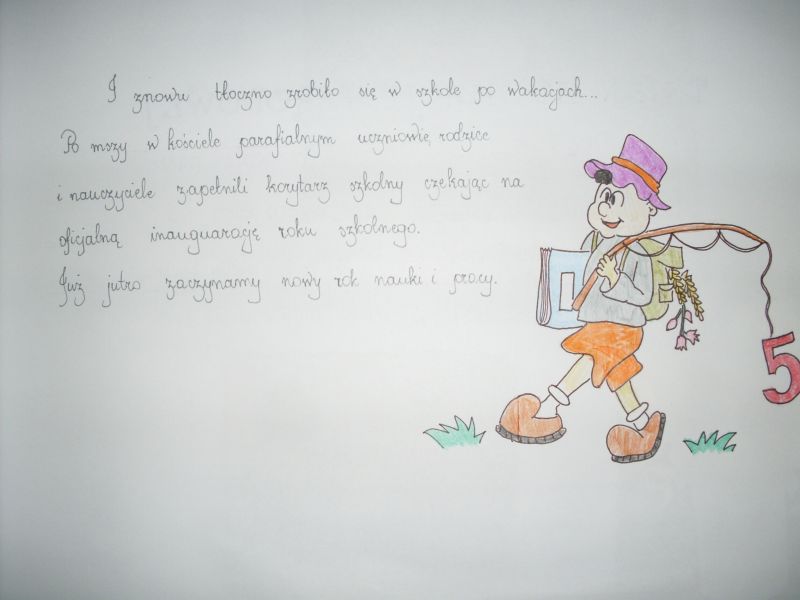 I znowu tłoczno zrobiło się w szkole po wakacjach...
Po mszy w kościele parafialnym uczniowie, rodzice
i nauczyciele zapełnili korytarz szkolny czekając na
oficjalną inauguarację roku szkolnego.
Już jutro zaczynamy nowy rok nauki i pracy.
5